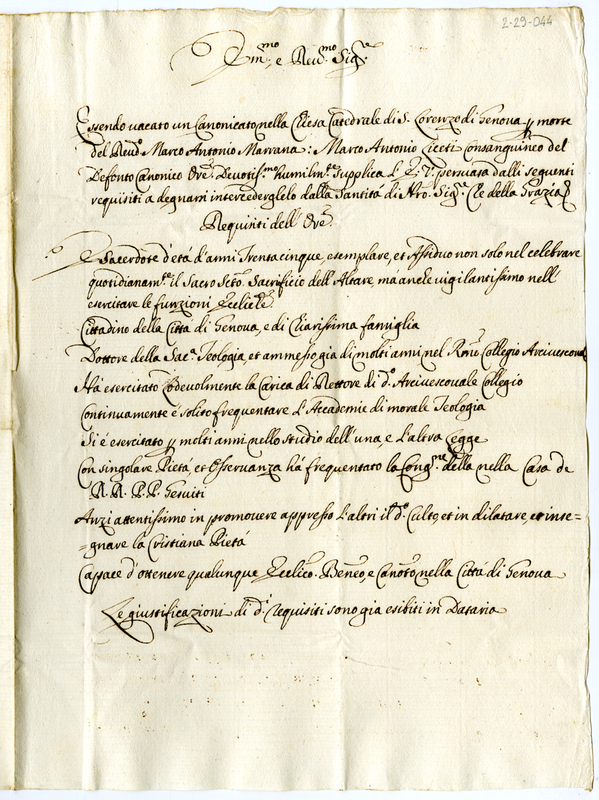 2-29-044
Em.mo e Reu.mo Sig.e
Essendo uacato un Canonicato nella Chiesa Catedrale di S. Lorenzo di Genoua p morte
del Reu.do Marco Antonio Marrana: Marco Antonio Ciceti consanguineo del
Defonto Canonico Ore. Deuotiss.mo humilm.te supplica L'E. V. persuasa dalli seguenti
requisiti a degnarsi intercederglelo dalla Santitá di Nro. Sig.e Che della Grazia
Requisiti dell' Ore
E Sacerdote d'etá d'anni Trentacinque, esemplare, et Assiduo non solo nel celebrare
quotidianam.te il Sacro Scto. Sacrificio dell'Altare, má anche uigilantissimo nell'
esercitare le funzioni Ecclie
Cittadino della Cittá di Genoua, e di Chiarissima famiglia
Dottore della Sac.a Teologia, et ammesso gia di molti anni nel Rmo Collegio Arciuescoual
Há esercitato lodevolmente la Carica di Rettore di d.o Arciuescouale Collegio
Continuamente é solito frequentare L'Accademie di morale Teologia
Si é esercitato p molti anni nello studio dell'una, e L'altra Legge
Con singolare Pieta, et Osseruanza há frequentato la Cong.ne della nella Casa de
R.R. P.P. Gesuiti
Anzi attentissimo in promouere appresso L'altri il d.o Culto, et in dilatare, et inse=
=gnare la Cristiana Pietá
Capace d'ottenere qualunque Ecclico. Beneo, e Canoto nella Cittá di Genoua
Le giustificazioni di d.i requisiti sono gia esibiti in Dataria